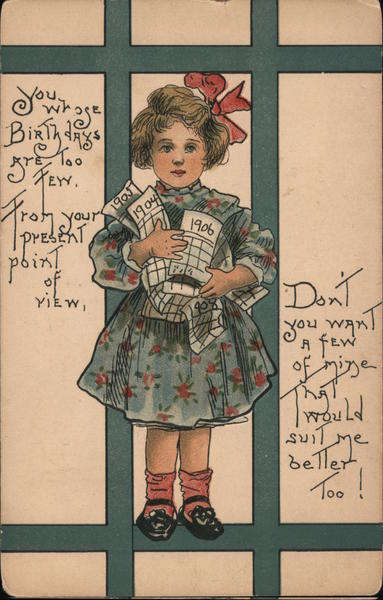 You whose
Birthdays
are too
few.
From your
present
point
of
view,
1905
1904
1906
Don't
you want
a few
of mine
That
would
suit me
better
too!